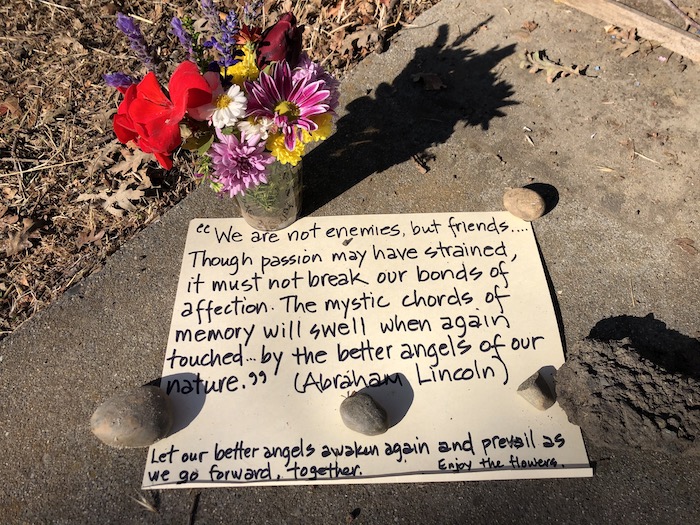 “We are not enemies, but friends....
Though passion may have strained,
it must not break our bonds of
affection. The mystic chords of
memory will swell when again
touched... by the better angels of our
nature.” (Abraham Lincoln)
Let our better angels awaken again and prevail as
we go forward, together. Enjoy the flowers.